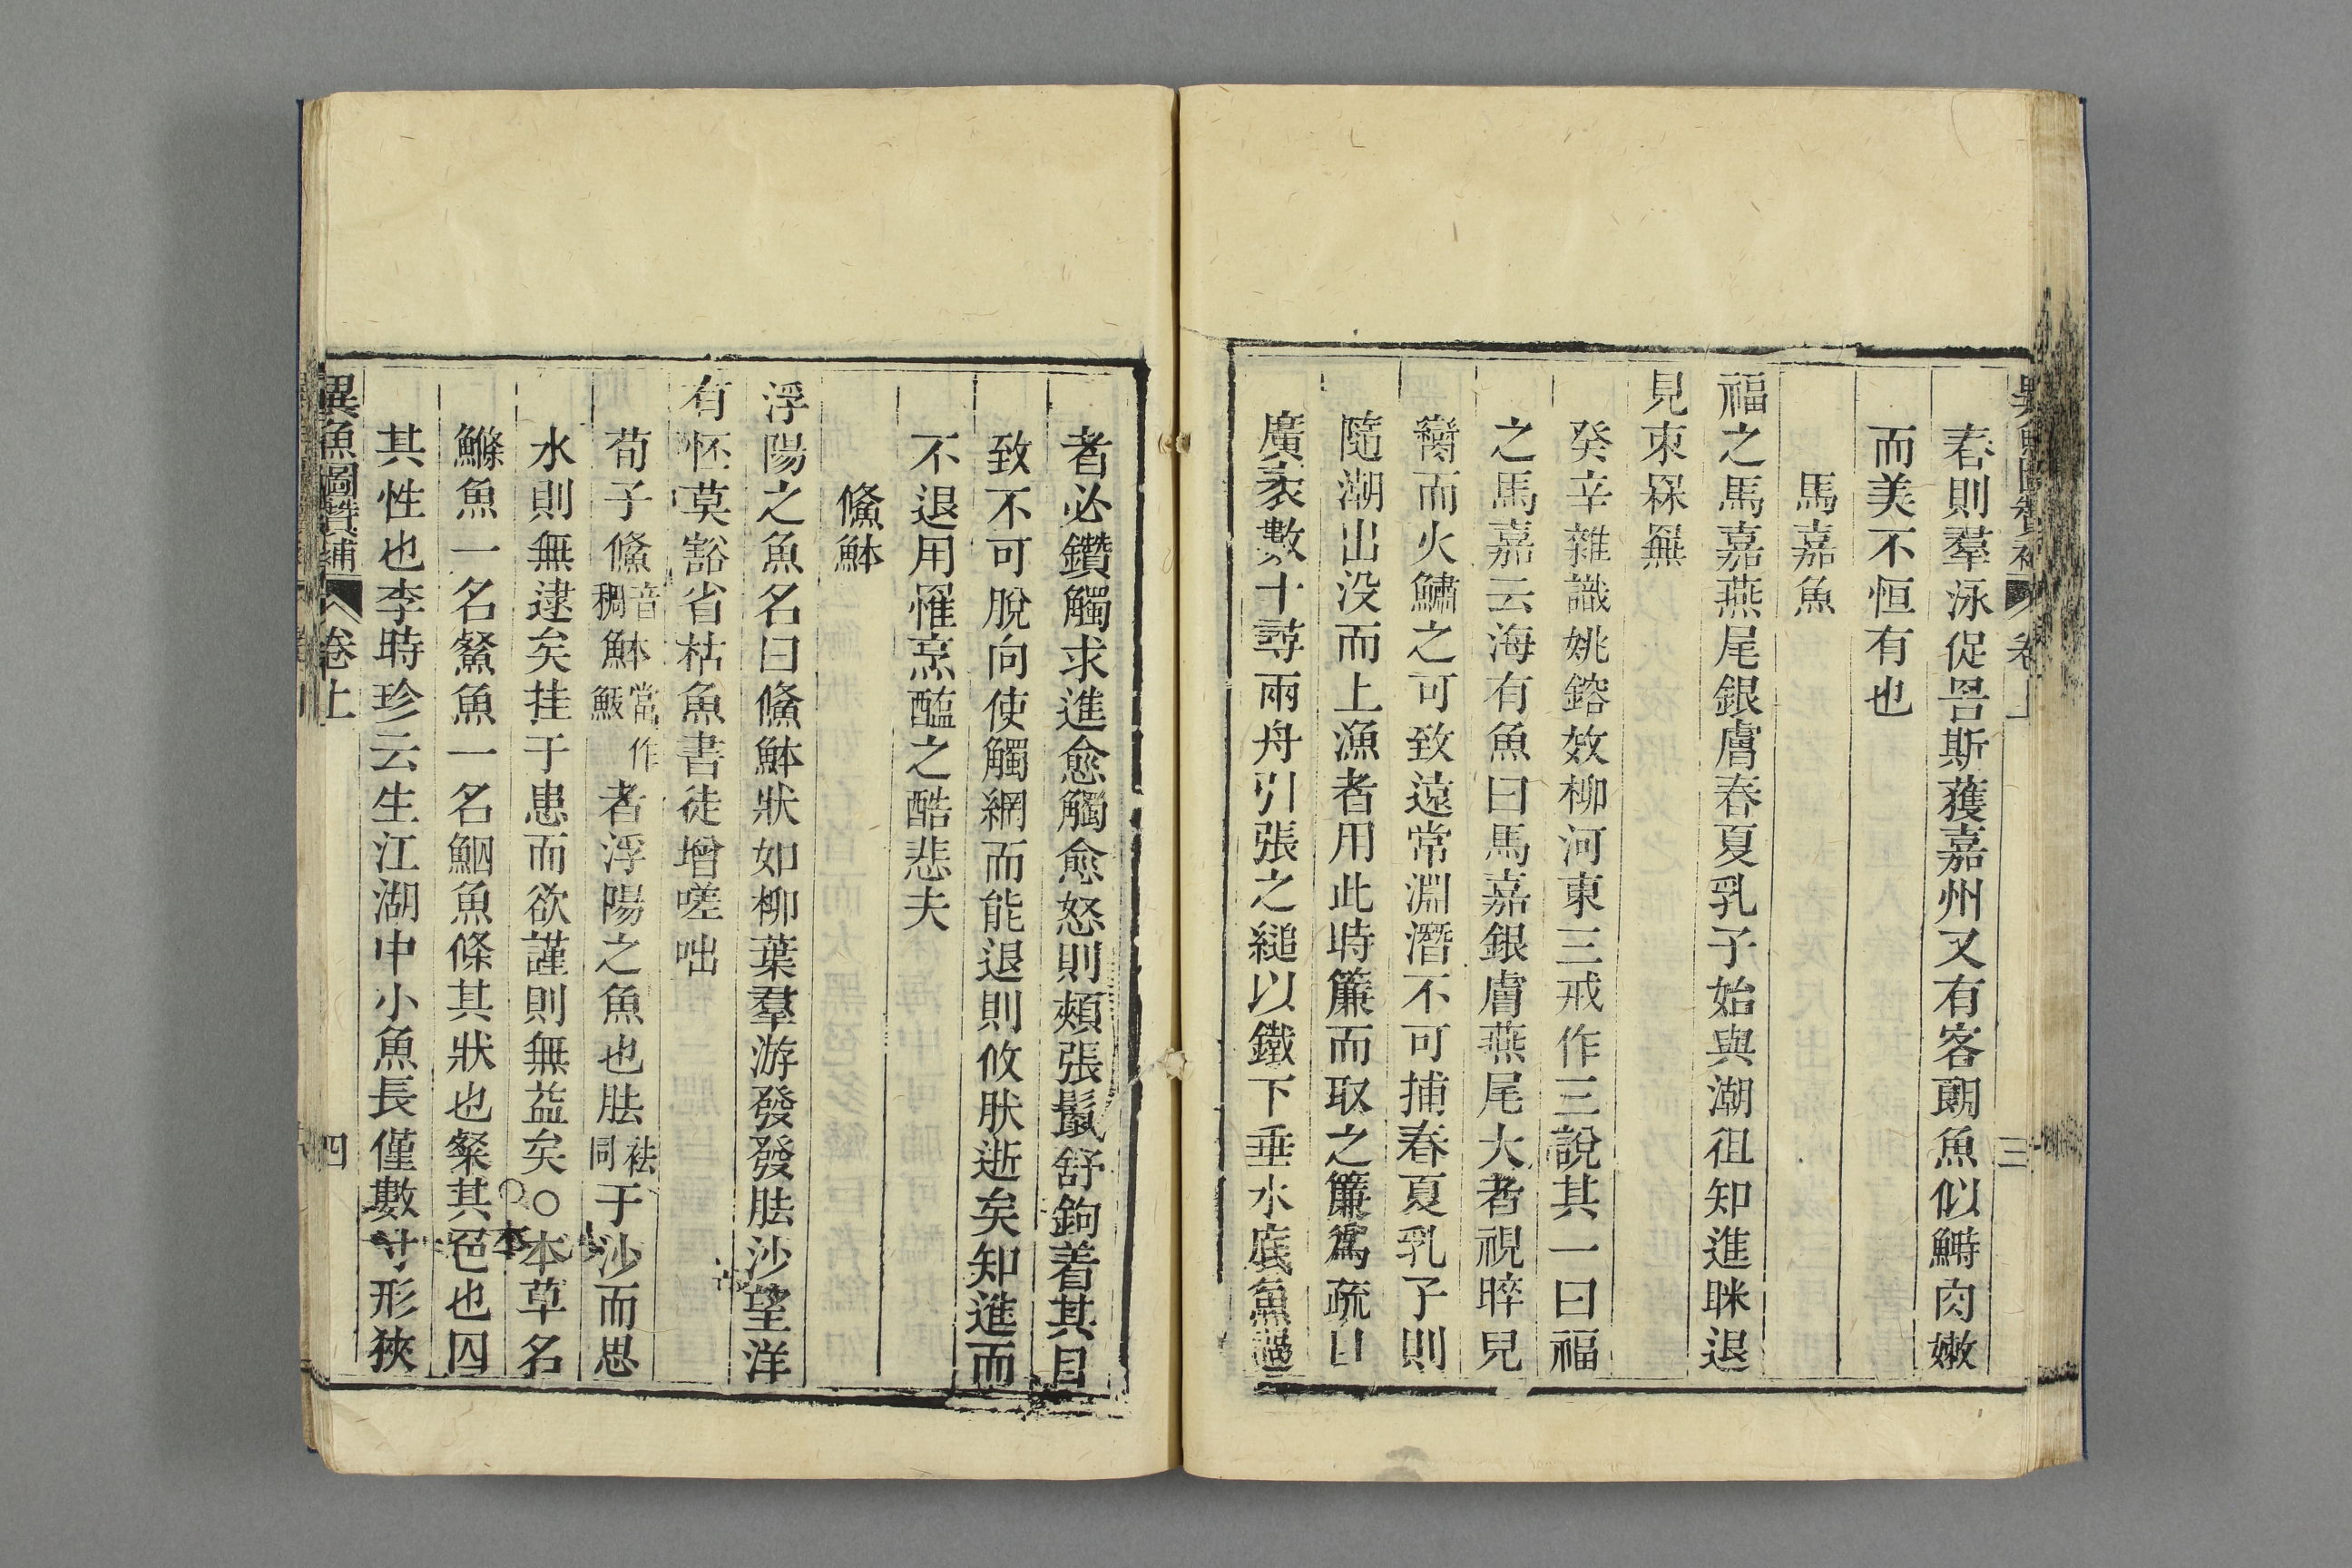 異魚圖贊補 卷上 三
春則羣泳促罟斯獲嘉州又有客郎魚似鰣肉嫩
而美不恒有也
馬嘉魚
福之馬嘉燕尾銀膚春夏乳子始與潮徂知進眯退
見朿罧䍢
癸辛雜識姚鎔效柳河東三戒作三說其一曰福
之馬嘉云海有魚曰馬嘉銀膚燕尾大者視晬兒
臠而火鱐之可致遠常淵潛不可捕春夏乳子則
隨潮出没而上漁者用此時簾而取之簾為疏目
廣袤數十尋兩舟引張之縋以鐵下垂水底魚過
者必鑽觸求進愈觸愈怒則頰張鬛舒鉤着其目
致不可脫向使觸網而能退則攸肰逝矣知進而
不退用罹烹醢之酷悲夫
鯈䱁
浮陽之魚名曰鯈䱁狀如柳葉羣游發發胠沙望洋
有怌莫豁省枯魚書徒增嗟咄
荀子鯈音稠䱁本當作鮁者浮陽之魚也胠袪同于沙而思
水則無逮矣挂于患而欲謹則無益矣○本草名
鰷魚一名鮝魚一名鮂魚條其狀也粲其色也囚
其性也李時珍云生江湖中小魚長僅數寸形狹
異魚圖贊補 卷上 四